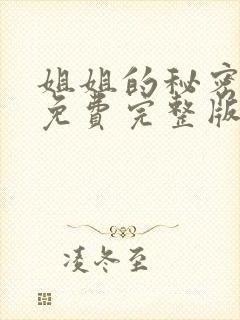 姐姐的秘密
免费完整版
凌冬至